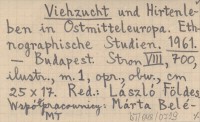 Viehzucht und Hirtenle-
ben in Ostmitteleuropa. Eth-
nographische Studien. 1961.
— Budapest Stron VIII, 700,
ilustr., m. 1, opr., obw., cm
25 x 17. Red.: László Földes
Współpracownicy: Márta Belé-
MT